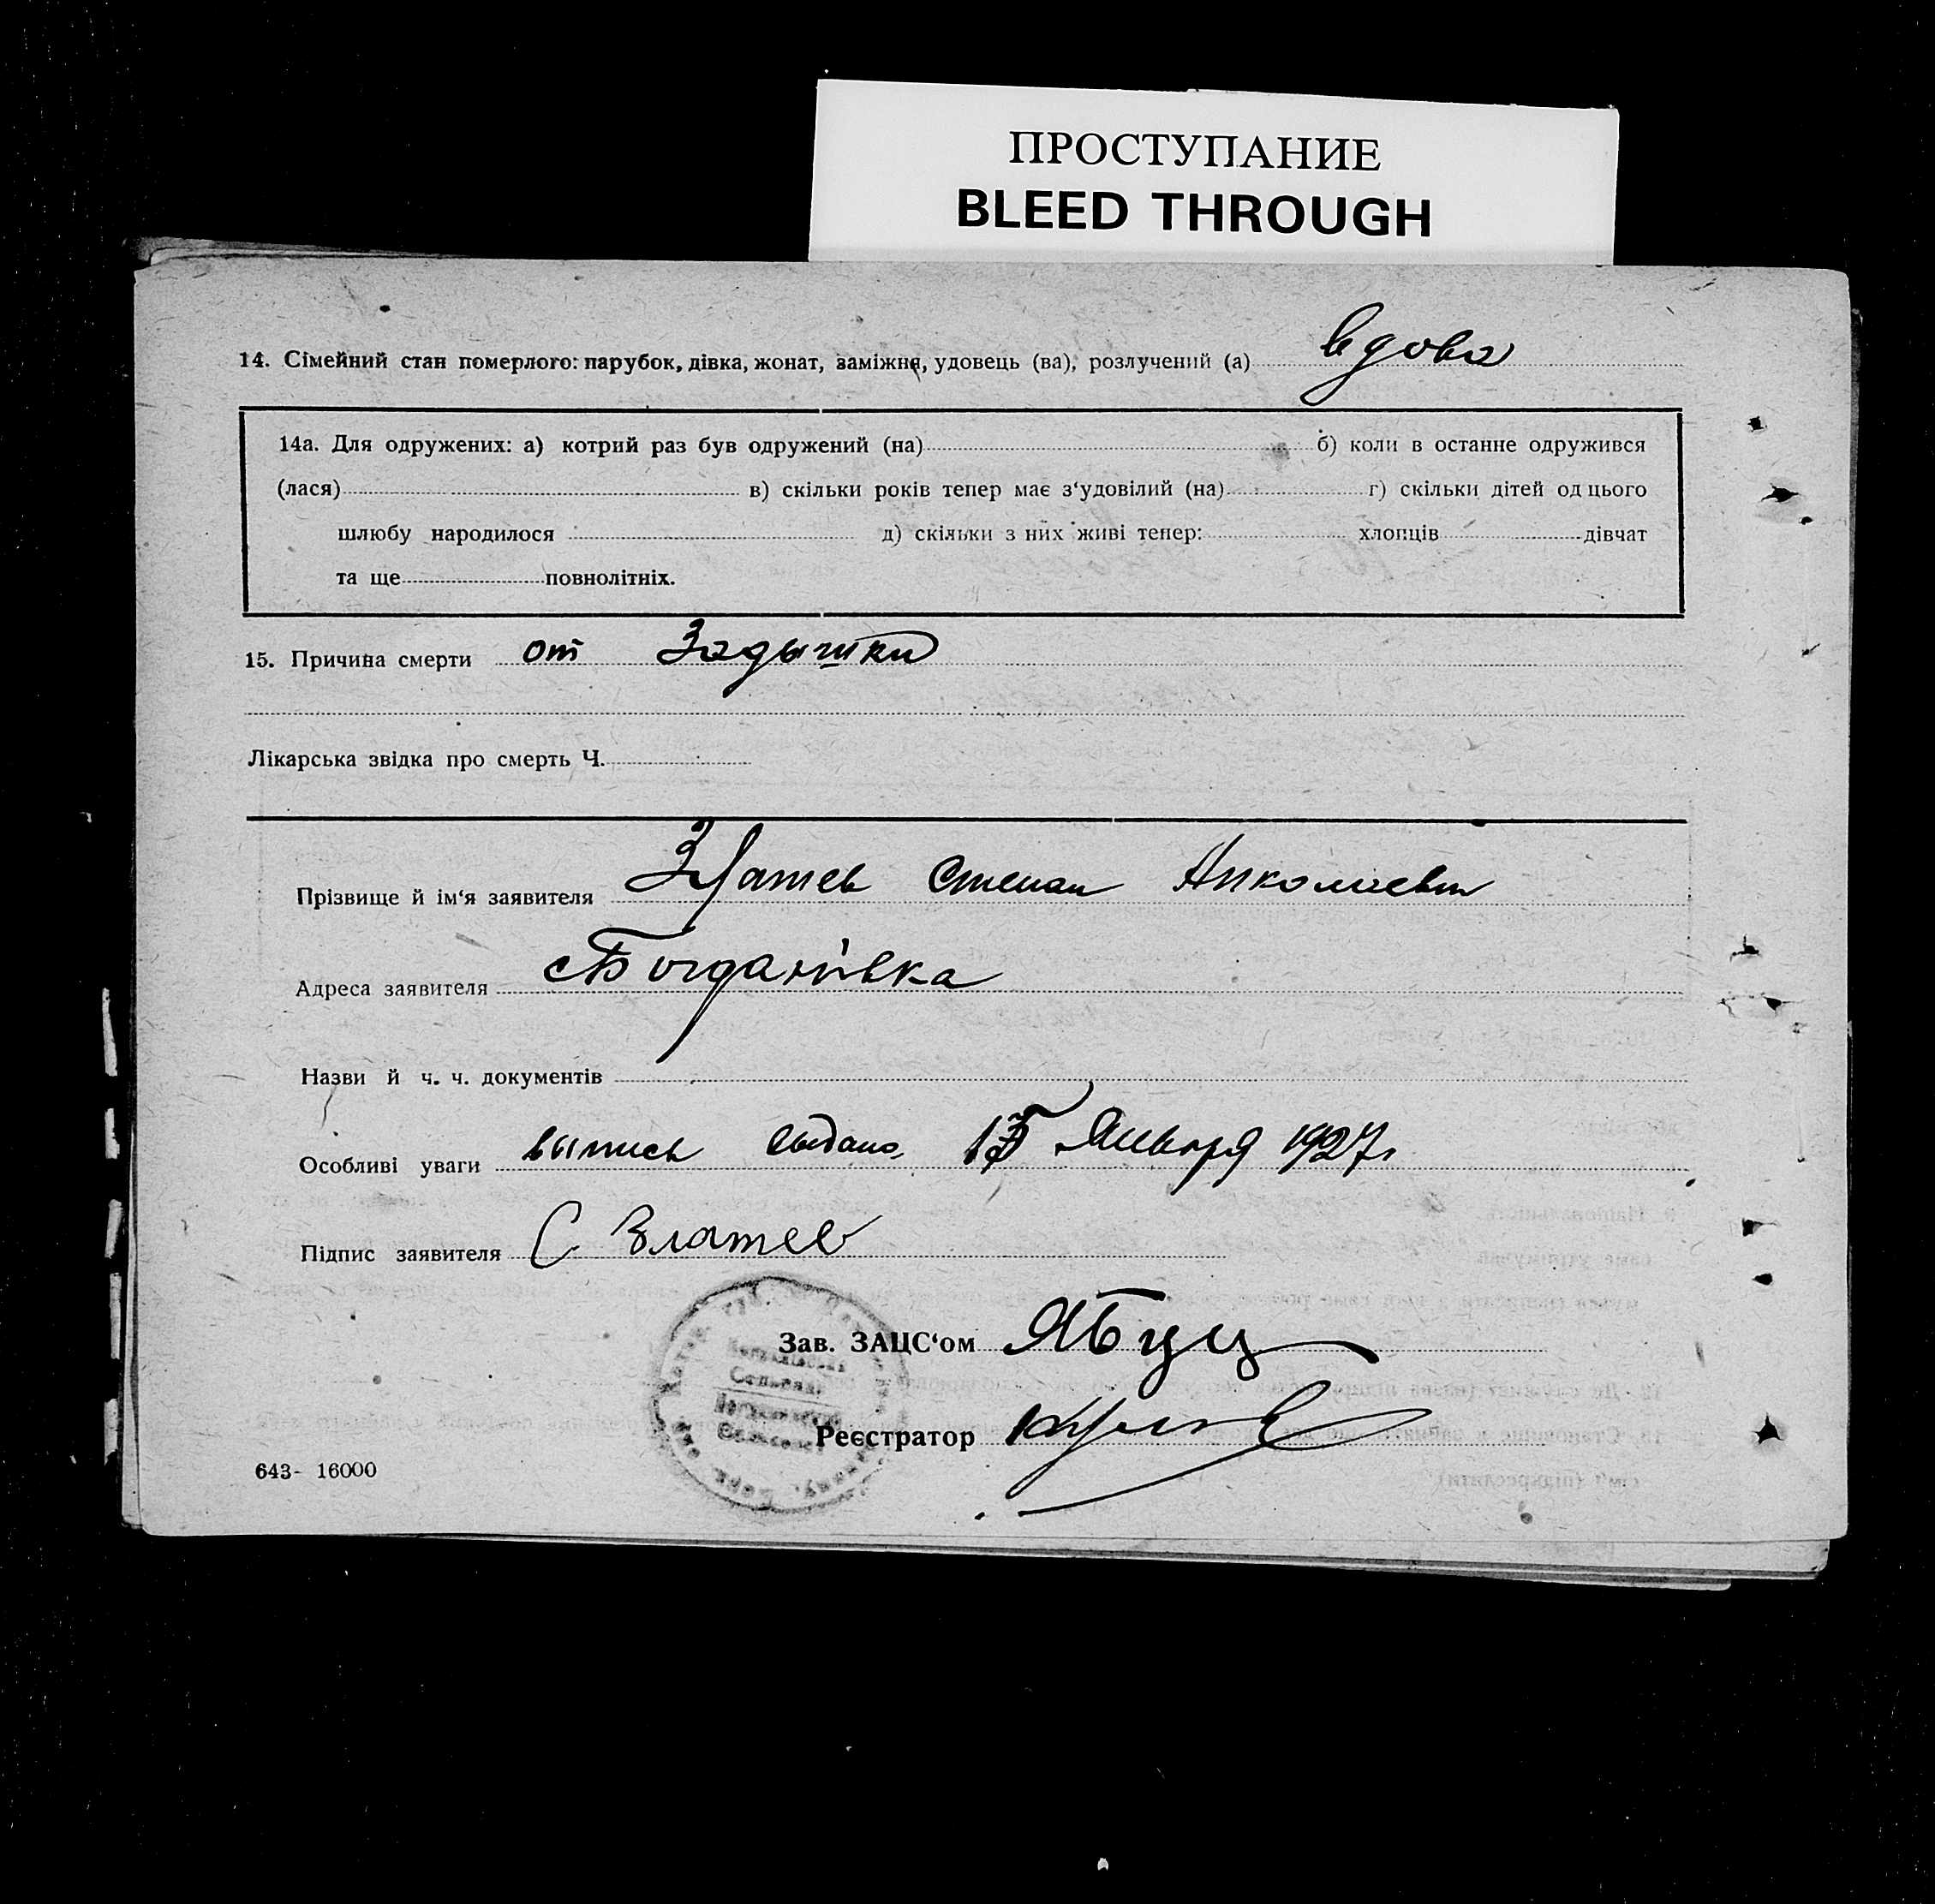 ПРОСТУПАНИЕ
BLEED THROUGH
14. Сімейний стан померлого: парубок, дівка, жонат, заміжня, удовець (ва), розлучений (а) вдова
14а. Для одружених: а) котрий раз був одружений (на) б) коли в останне одружився
(лася) в) скільки років тепер має з‘удовілий (на) г) скільки дітей од цього
шлюбу народилося д) скільки з них живі тепер: хлопців дівчат
та ще повнолітніх.
15. Причина смерти от Задышки
Лікарська звідка про смерть Ч.
Прізвище й ім‘я заявителя Златев Степан Николаевич
Адреса заявителя с Богданівка
Назви й ч. ч. документів
Особливі уваги выпись выдана Января 1927 г
Підпис заявителя С Златев
Зав. ЗАЦС‘ом
Реєстратор
643- 16000